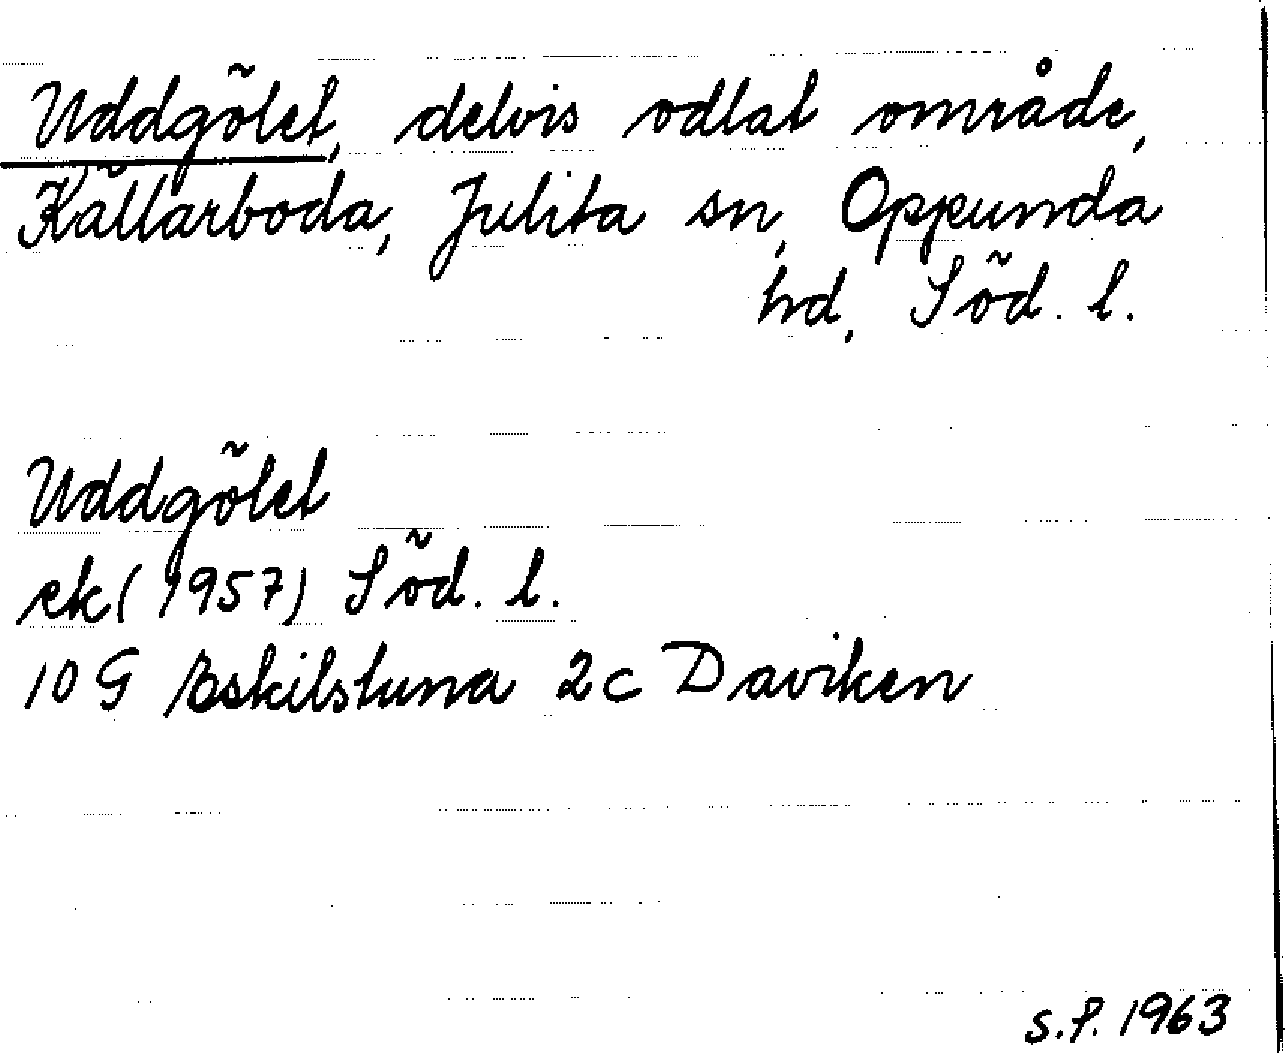 Uddgölet, delvis odlat område,
Källarboda, Julita sn, Oppunda
hd, Söd. l.
Uddgölet
ek (1957) Söd. l.
10 G Eskilstuna 2c Daviken
S.P. 1963